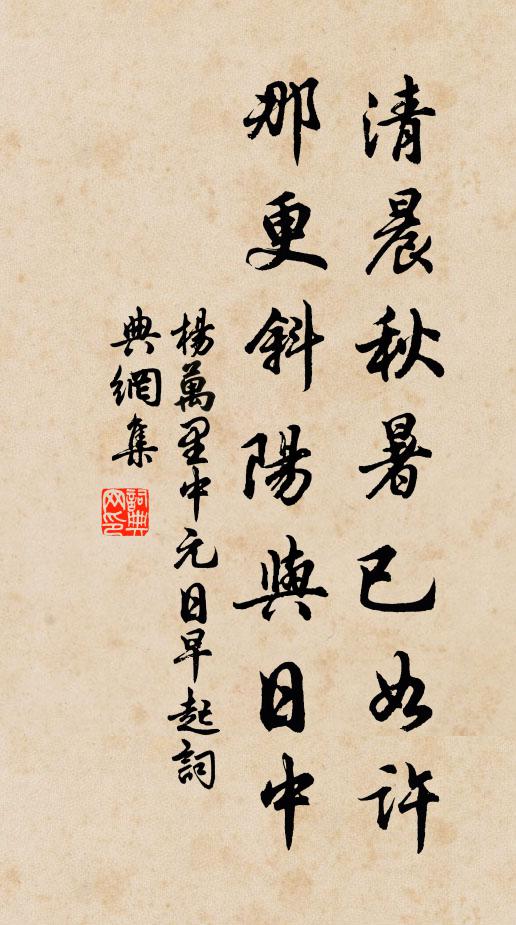 清晨秋暑已如許
那更斜陽與日中
楊萬里中元日早起詞
典網集
詞典网印